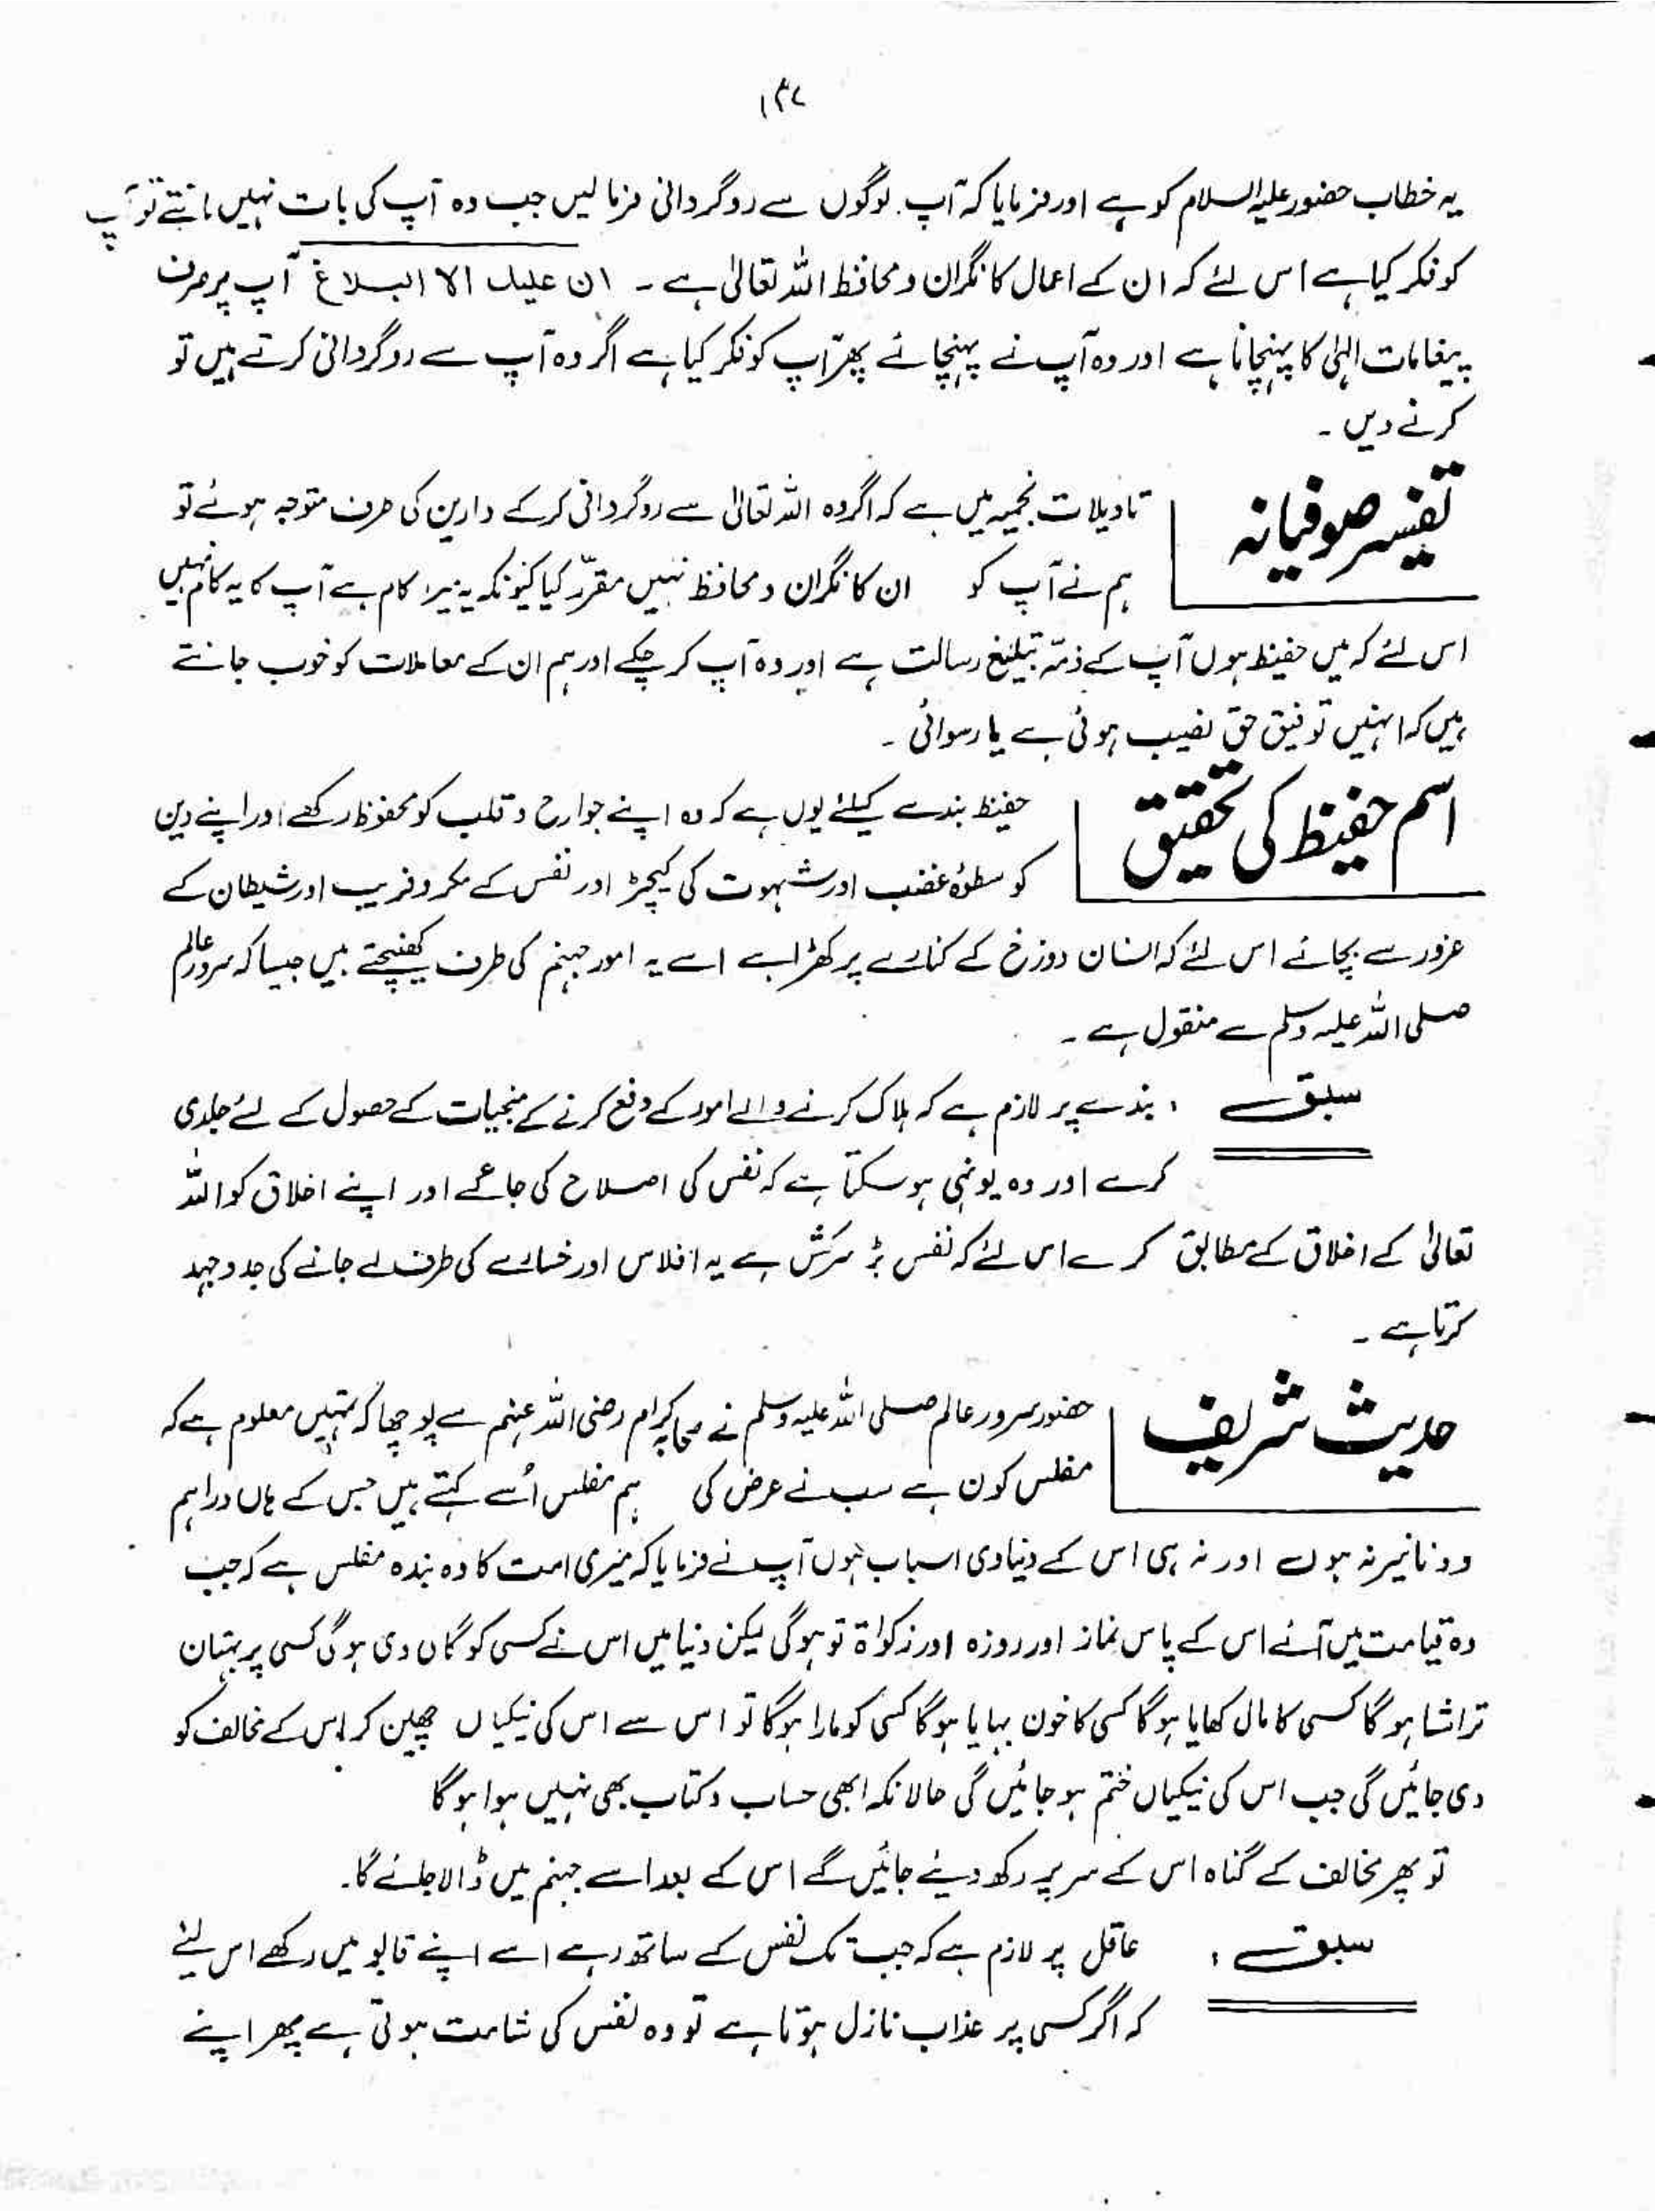 ۱۴۷
یہ خطاب حضور علیہ السلام کو ہے اور فرمایا کہ آپ لوگوں سے روگردانی فرما لیں جب وہ آپ کی بات نہیں مانتے تو آپ
کو فکر کیا ہے اس لئے کہ ان کے اعمال کا نگران و محافظ اللہ تعالیٰ ہے ۔ ان علیک الا البلاغ آپ پر صرف
پیغامات الہٰی کا پہنچانا ہے اور وہ آپ نے پہنچائے پھر آپ کو فکر کیا ہے اگر وہ آپ سے روگردانی کرتے ہیں تو
کرنے دیں ۔
تفسیر صوفیانہ
تاویلات نجمیہ میں ہے کہ اگر وہ اللہ تعالیٰ سے روگردانی کر کے دارین کی طرف متوجہ ہوئے تو
ہم نے آپ کو ان کا نگران و محافظ نہیں مقرّر کیا کیونکہ یہ میرا کام ہے آپ کا یہ کام نہیں
اس لئے کہ میں حفیظ ہوں آپ کے ذمّہ تبلیغ رسالت ہے اور وہ آپ کر چکے اور ہم ان کے معاملات کو خوب جانتے
ہیں کہ انہیں توفیق حق نصیب ہوئی ہے یا رسوائی ۔
اسم حفیظ کی تحقیق
حفیظ بندے کیلئے یوں ہے کہ وہ اپنے جوارح و قلب کو محفوظ رکھے اور اپنے دین
کو سطوۃ غضب اور شہوت کی کیچڑ اور نفس کے مکر و فریب اور شیطان کے
غرور سے بچائے اس لئے کہ انسان دوزخ کے کنارے پر کھڑا ہے اسے یہ امور جہنم کی طرف کھینچتے ہیں جیسا کہ سرور عالم
صلی اللہ علیہ وسلم سے منقول ہے ۔
سبق ، بندے پر لازم ہے کہ ہلاک کرنے والے امور کے دفع کرنے کے منجیات کے حصول کے لئے جلدی
کرے اور وہ یونہی ہو سکتا ہے کہ نفس کی اصلاح کی جائے اور اپنے اخلاق کو اللہ
تعالیٰ کے اخلاق کے مطابق کرے اس لئے کہ نفس بڑ سرکش ہے یہ افلاس اور خسارے کی طرف لے جانے کی جدوجہد
کرتا ہے ۔
حدیث شریف
حضور سرور عالم صلی اللہ علیہ وسلم نے صحابہ کرام رضی اللہ عنہم سے پوچھا کہ تمہیں معلوم ہے کہ
مفلس کون ہے سب نے عرض کی ہم مفلس اُسے کہتے ہیں جس کے ہاں دراہم
و دنانیر نہ ہوں اور نہ ہی اس کے دنیاوی اسباب ہوں آپ نے فرمایا کہ میری امت کا وہ بندہ مفلس ہے کہ جب
وہ قیامت میں آئے اس کے پاس نماز اور روزہ اور زکواۃ تو ہوگی لیکن دنیا میں اس نے کسی کو گالی دی ہوگی کسی پر بہتان
تراشا ہوگا کسی کا مال کھایا ہوگا کسی کا خون بہایا ہوگا کسی کو مارا ہوگا تو اس سے اس کی نیکیاں چھین کر اس کے مخالف کو
دی جائیں گی جب اس کی نیکیاں ختم ہو جائیں گی حالانکہ ابھی حساب و کتاب بھی نہیں ہوا ہوگا
تو پھر مخالف کے گناہ اس کے سر پر رکھ دیئے جائیں گے اس کے بعد اسے جہنم میں ڈالا جائے گا۔
سبق ، عاقل پر لازم ہے کہ جب تک نفس کے ساتھ رہے اسے اپنے قابو میں رکھے اس لئے
کہ اگر کسی پر عذاب نازل ہوتا ہے تو وہ نفس کی شامت ہوتی ہے پھر اپنے